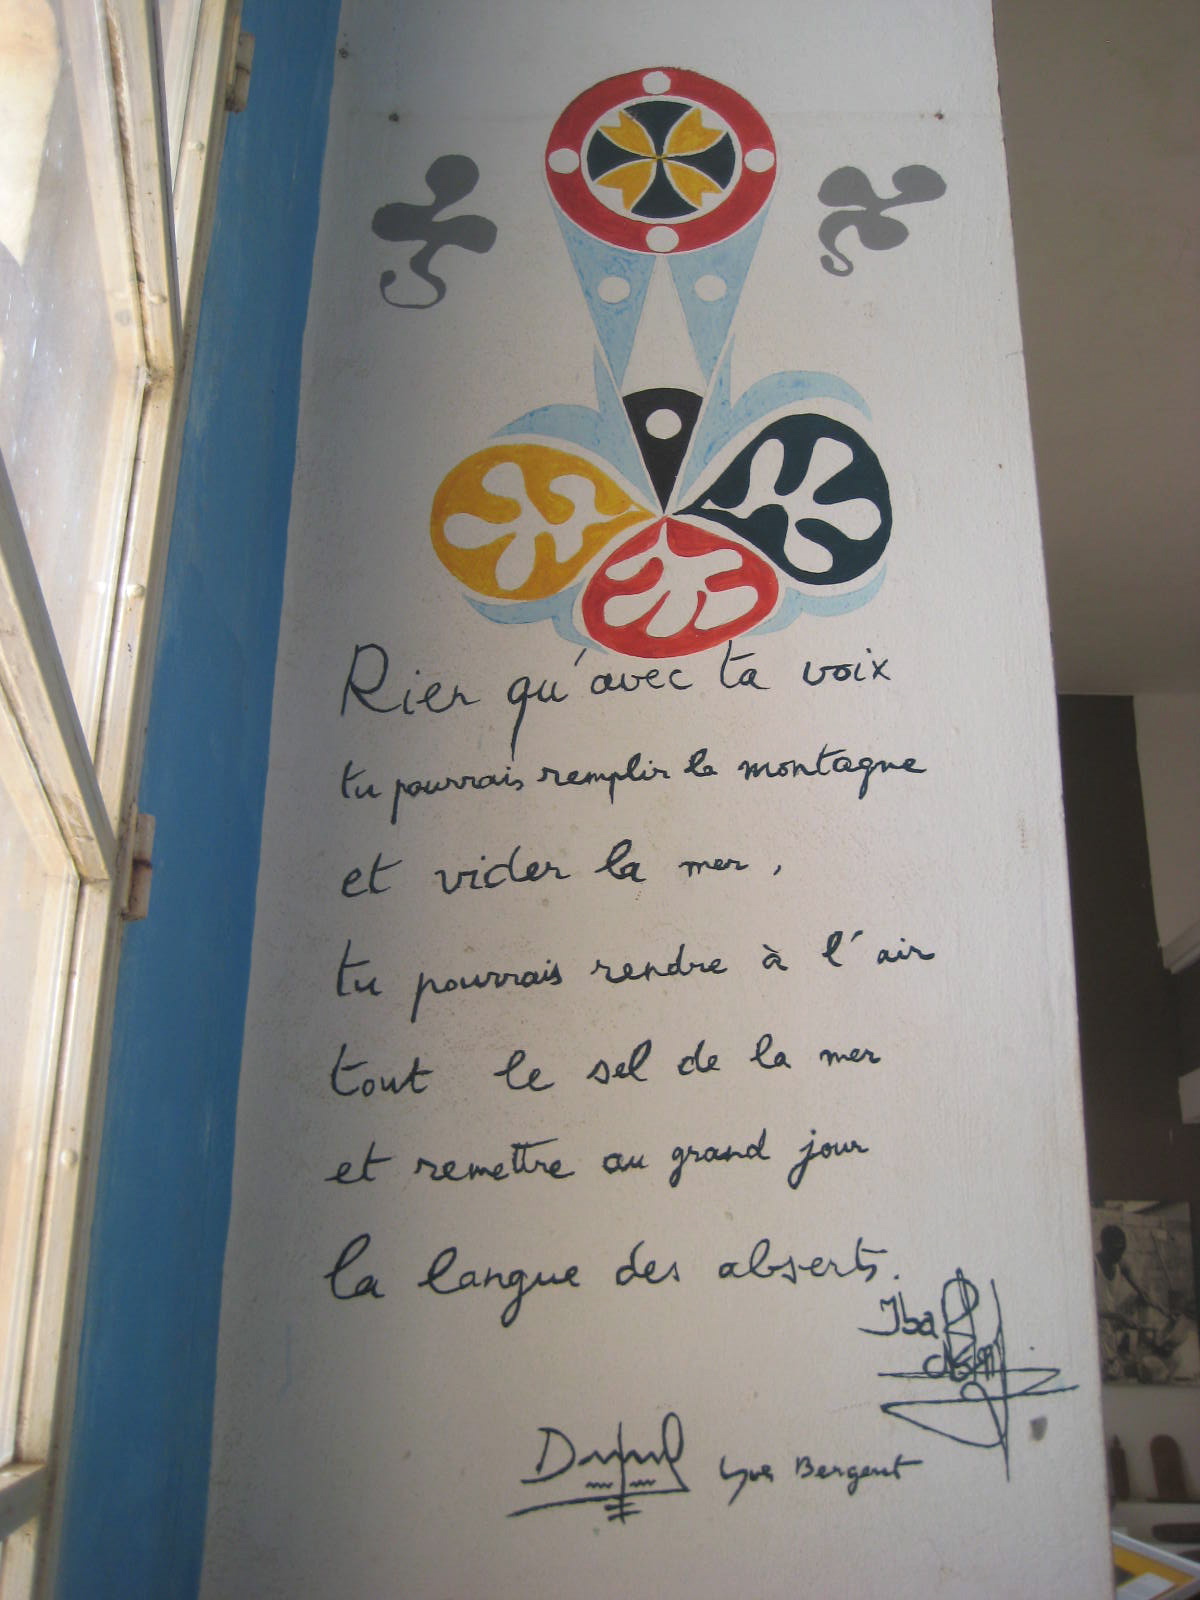 Rien qu'avec ta voix
tu pourrais remplir la montagne
et vider la mer,
tu pourrais rendre à l'air
tout le sel de la mer
et remettre au grand jour
la langue des absents.
Iba
Yves Bergeret